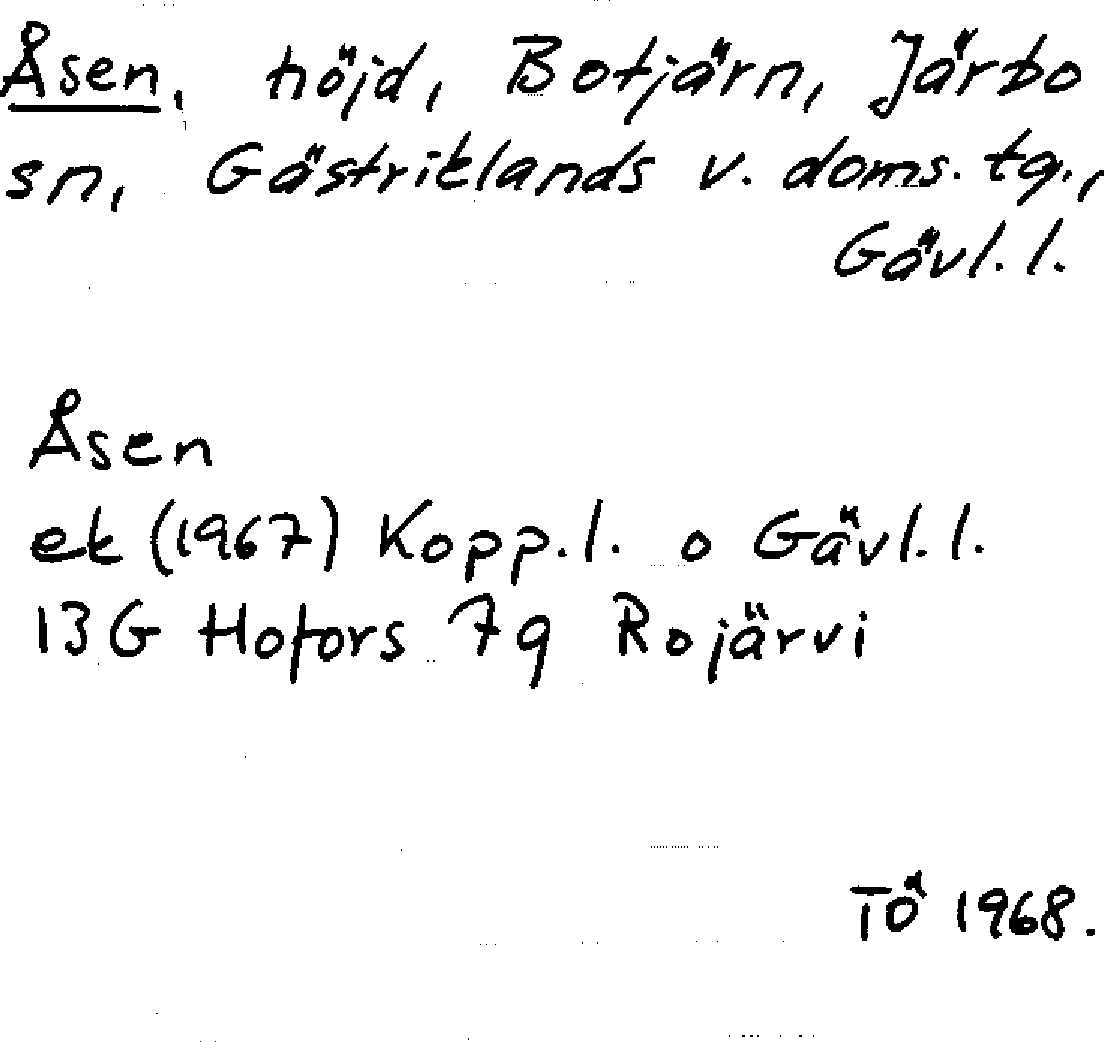 Åsen, höjd, Botjärn, Järbo
sn, Gästriklands v. doms. tg.,
Gävl. l.
Åsen
ek (1967) Kopp. l. o Gävl. l.
13G Hofors 7g Rojärvi
TÖ 1968.